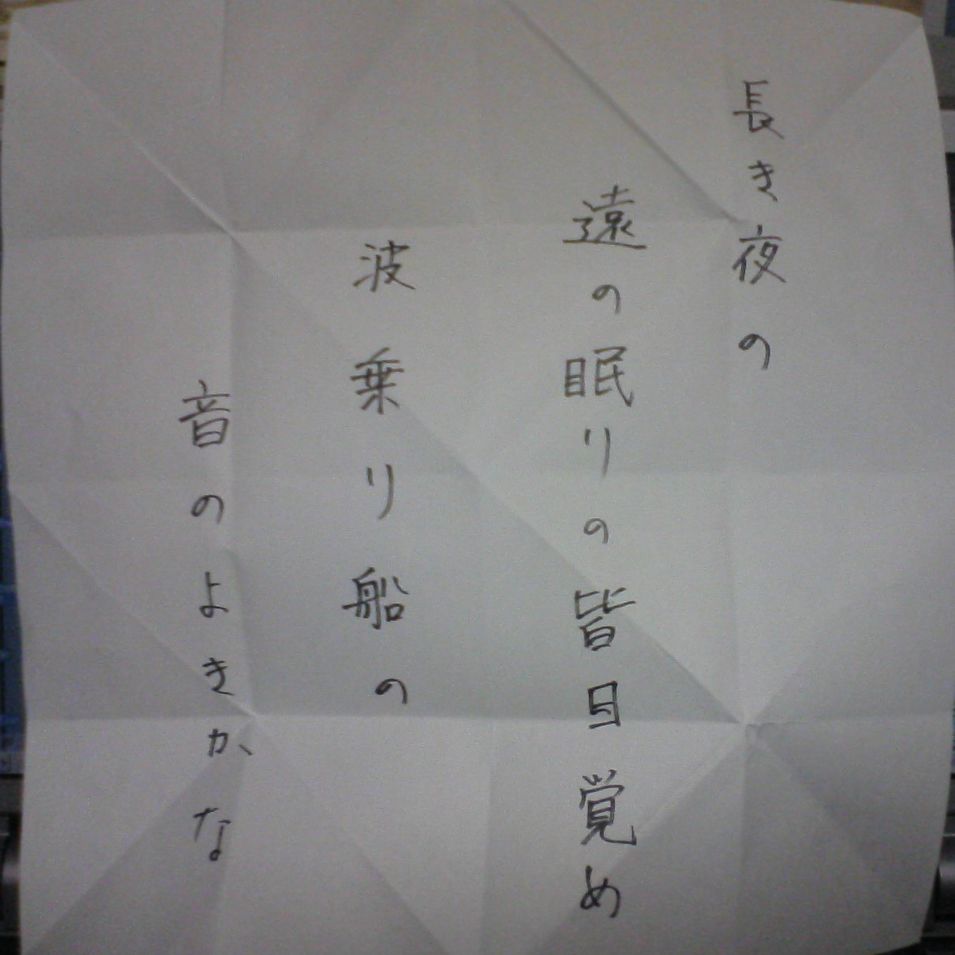 長き夜の
遠の眠りの皆目覚め
波乗り船の
音のよきかな